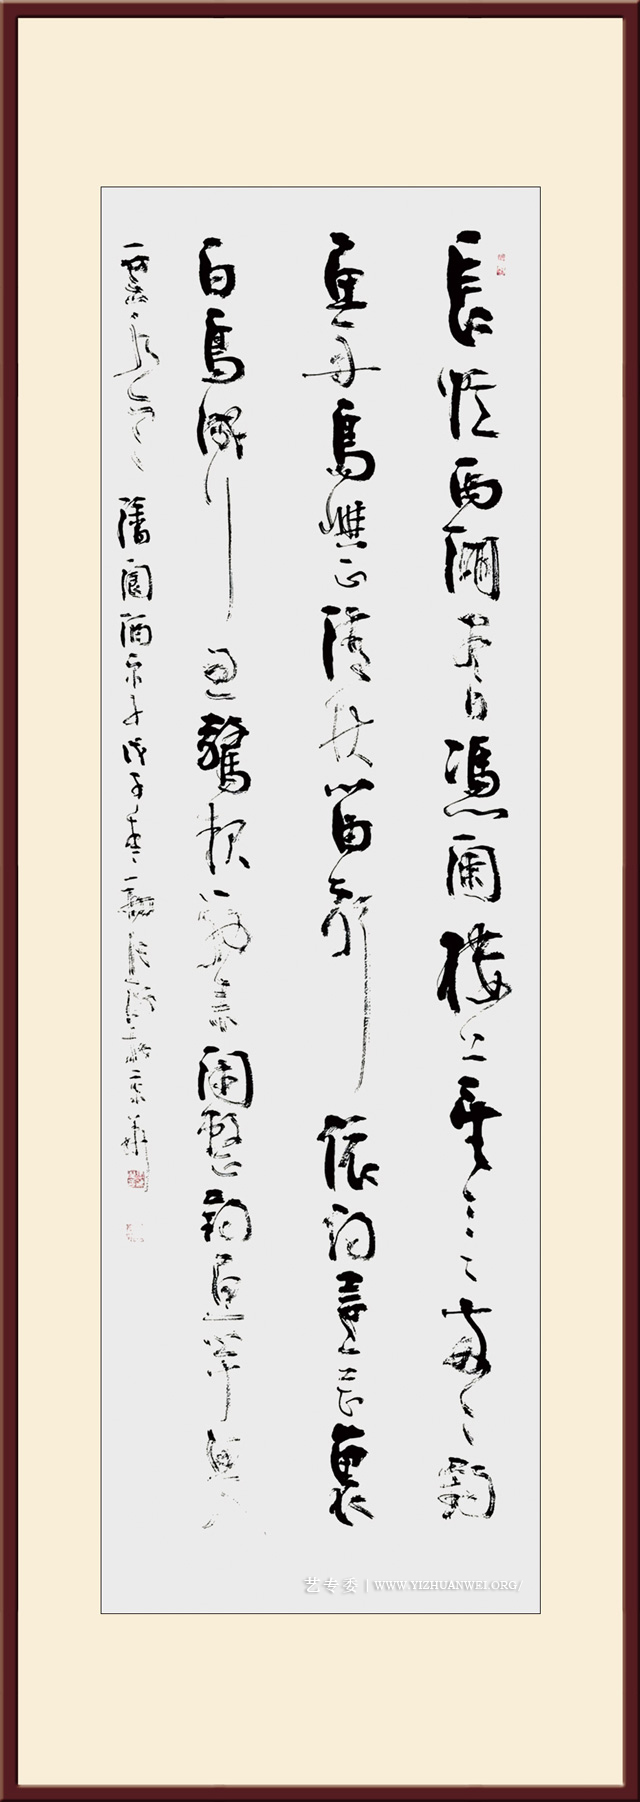 長憶西湖盡日憑闌樓上望三三兩兩釣
魚舟島嶼正清秋笛聲依約蘆花裏
白鳥成行忽驚起別來閑整釣魚竿思入
水雲寒 潘閬酒泉子戊子春
艺专委 | WWW.YIZHUANWEI.ORG/